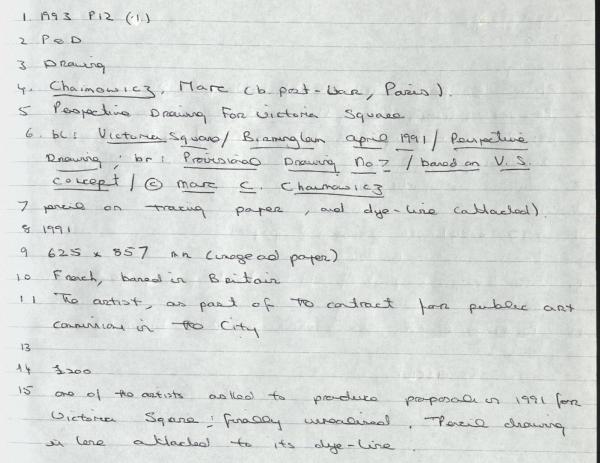 1 1993 P12 (.1)
2 P&D
3 Drawing
4. Chaimowicz, Marc (b. post-War, Paris).
5 Perspective Drawing For Victoria Square
6. bl: Victoria Square/ Birmingham april 1991/ Perspective
Drawing; br: Provisional Drawing No 2 / based on V.S.
concept / © Marc C. Chaimowicz
7 pencil on tracing paper, and dye-line (attached).
8 1991
9 625 x 857 mm (image and paper)
10 French, based in Britain
11 The artist, as part of the contract for public art
commissions in the City
13
14 £200
15 one of the artists asked to produce proposals in 1991 for
Victoria Square; finally unrealised. Pencil drawing
is here attached to its dye-line.